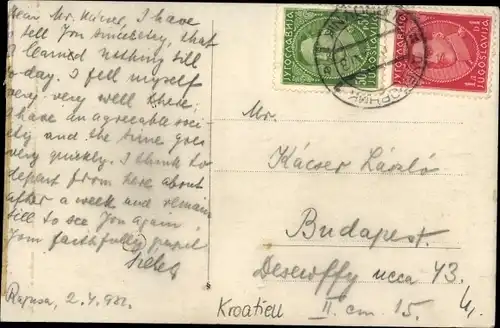 Dear Mr. Kácser, I have
to tell You sincerely, that
I learned nothing till
to-day. I fell myself
very-very well there;
I have an agreeable soci-
ety and the time goes
very quickly. I think to
depart from here about
after a week and remain
till to see You again,
Your faithfully pupil
Ragusa, 2.4.932.
ЈУГОСЛАВИЈА
JUGOSLAVIJA
ЈУГОСЛАВИЈА
JUGOSLAVIJA
1 Д
D 1
Mr.
Kácser László
Budapest.
Desewffy ucca 43.
II. em. 15.
Kroatien